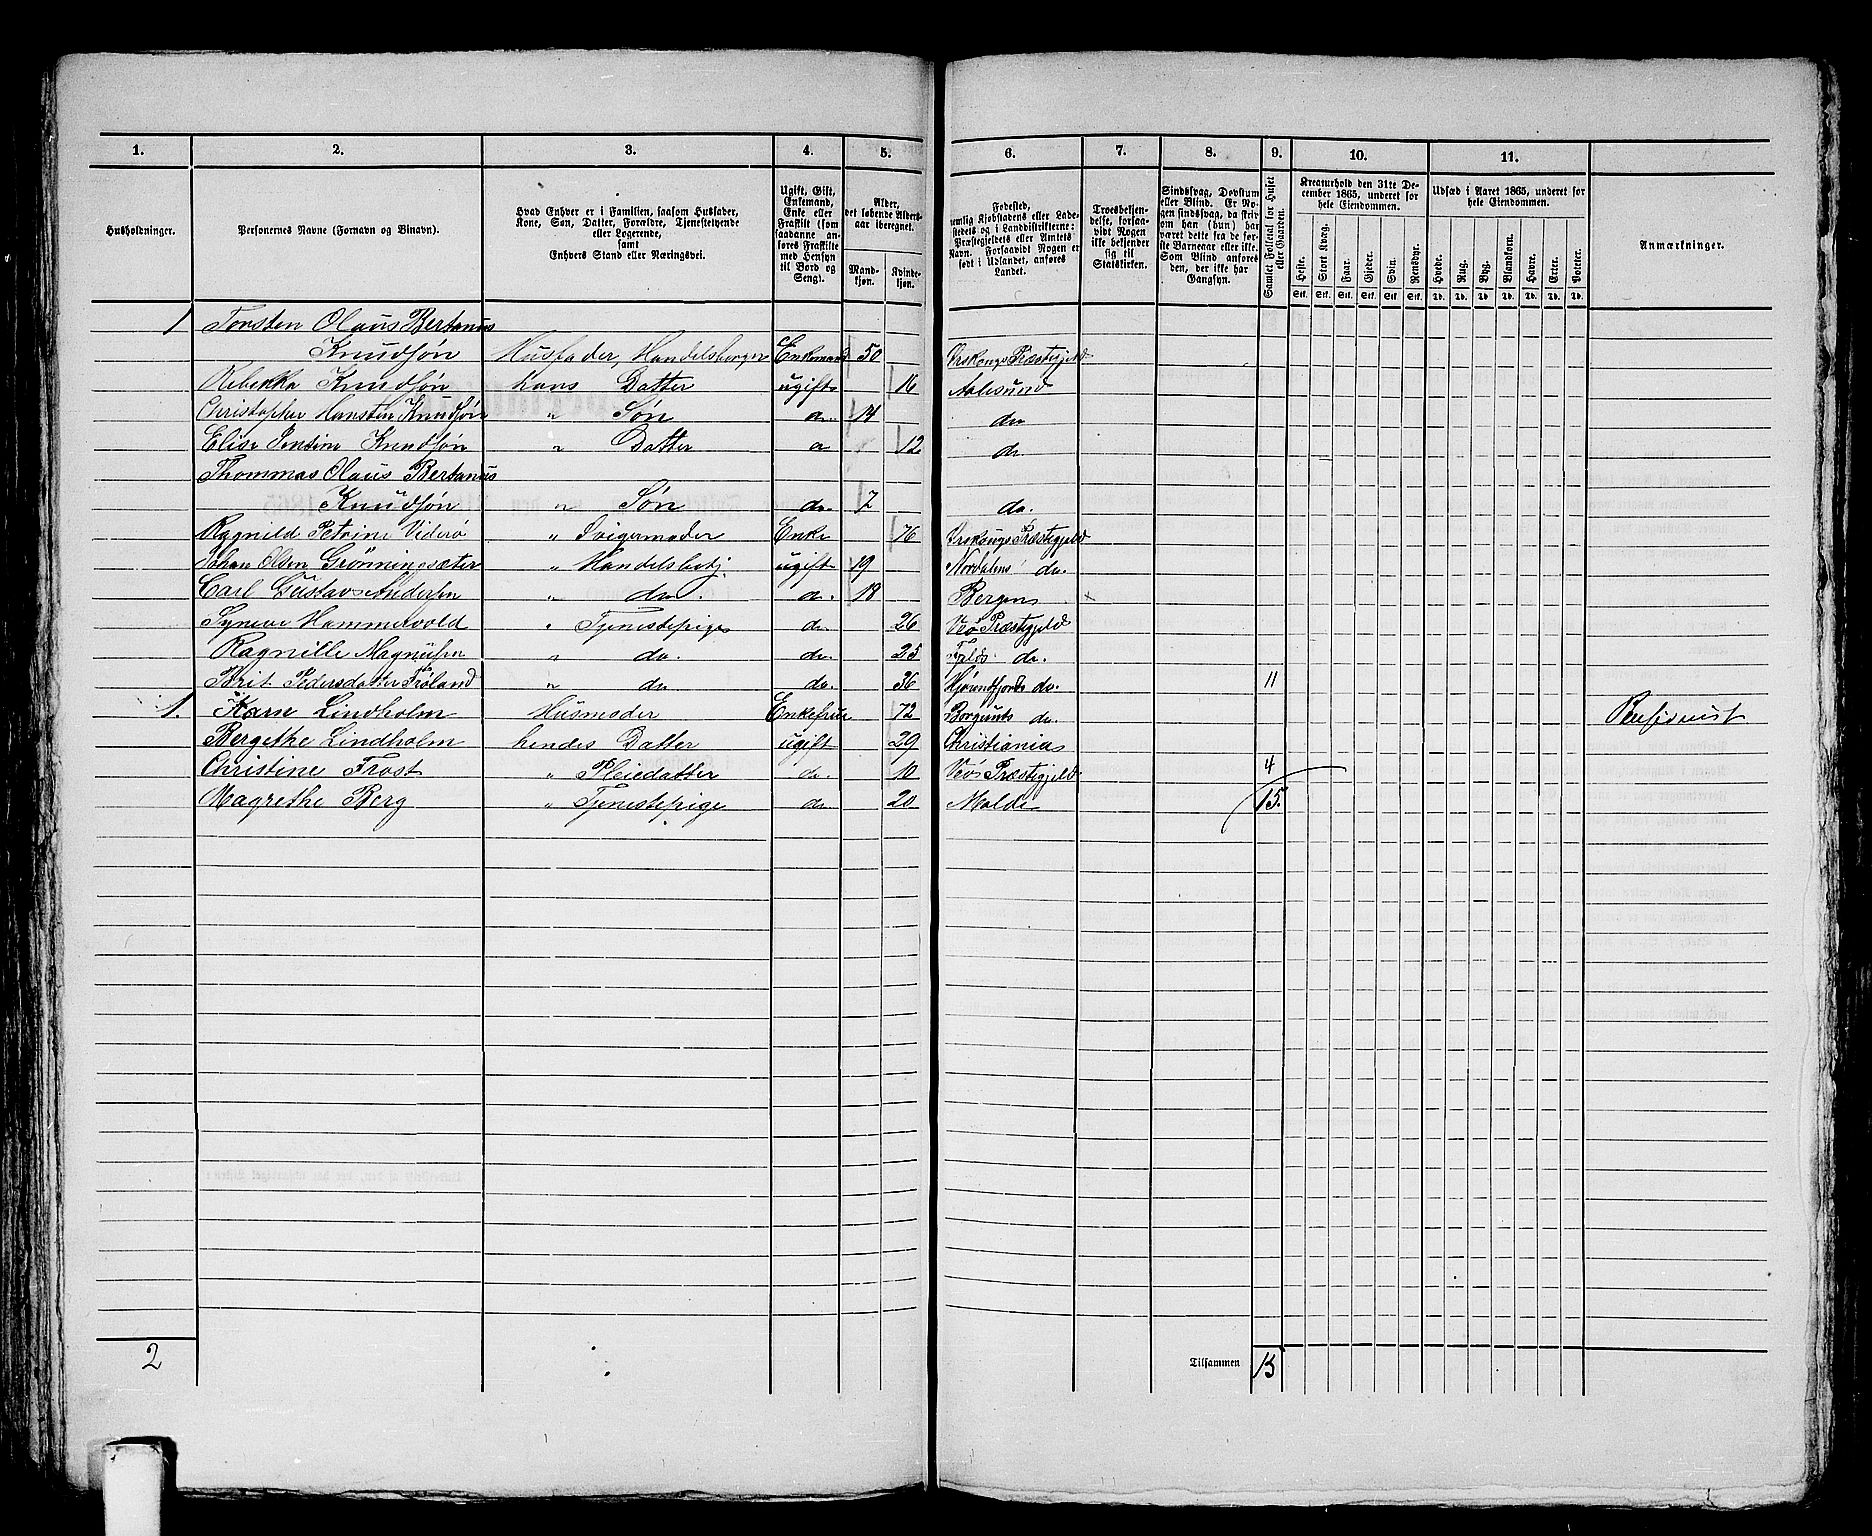 1. 2. 3. 4. 5. 6. 7. 8. 9. 10. 11.
Husholdninger.
Personernes Navne (Fornavn og Binavn).
Hvad Enhver er i Familien, saasom Husfader,
Kone, Søn, Datter, Forældre, Tjenestetyende
eller Logerende,
samt
Enhvers Stand eller Næringsvei.
Ugift, Gift,
Enkemand,
Enke eller
Fraskilt (som
saadanne an-
føres Fraskilte
med Hensyn
til Bord og
Seng).
Alder,
det løbende Alders-
aar iberegnet.
Mand-
kjøn.
Kvinde-
kjøn.
Fødested,
nemlig Kjøbstadens eller Lade-
stedets og i Landdistrikterne:
Præstegjeldets eller Amtets
Navn. Forsaavidt Nogen er
født i Udlandet, anføres
Landet.
Troesbekjen-
delse, forsaa-
vidt Nogen
ikke bekjender
sig til
Statskirken.
Sindssvag, Døvstum
eller Blind. Er No-
gen sindssvag, da skriv
om han (hun) har
været dette fra de før-
ste Barneaar eller ikke.
Som Blind anføres
den, der ikke har
Gangsyn.
Samlet Folketal for Huset
eller Gaarden.
Kreaturhold den 31te De-
cember 1865, underet for
hele Eiendommen.
Heste. Stort Kvæg. Faar. Gjeder. Svin. Rensdyr.
Stk. Stk. Stk. Stk. Stk. Stk.
Udsæd i Aaret 1865, underet for
hele Eiendommen.
Hvede. Rug. Byg. Blandkorn. Havre. Erter. Poteter.
Td. Td. Td. Td. Td. Td. Td.
Anmærkninger.
1 Torsten Olaus Bertanus
Knudsøn Husfader, Handelsborger Enkemand 50 Ørskougs Præstegjeld
Rebekka Knudsøn hans Datter ugift 16 Aalesund
Christopher Hansten Knudsøn " Søn do. 14 do
Elise Jensine Knudsøn " Datter do 12 do
Thommas Olaus Bertanus
Knudsøn " Søn do. 7 do.
Ragnild Petrine Viderø " Svigermoder Enke 76 Ørskougs Præstegjeld
Johan Olsen Grønningsæter " Handelsbetj. ugift 19 Nordalens do.
Carl Gustav Andersen " do. do. 18 Bergen ×
Synneve Hammervold " Tjenestepige do. 26 Veø Præstegjeld
Ragnille Magnusen " do. do. 25 do.
Brit Pedersdatter " do do. 36 Hjørendfjords do. 11
1. Karen Lindholm Husmoder Enkefrue 72 Borgunds do. Pensionist
Bergethe Lindholm hendes Datter ugift 29 Christiania
Christine Frost " Pleiedatter do. 10 Veø Præstegjeld 4
Magrethe Berg " Tjenestepige do 20 Molde 15.
2 Tilsammen 15